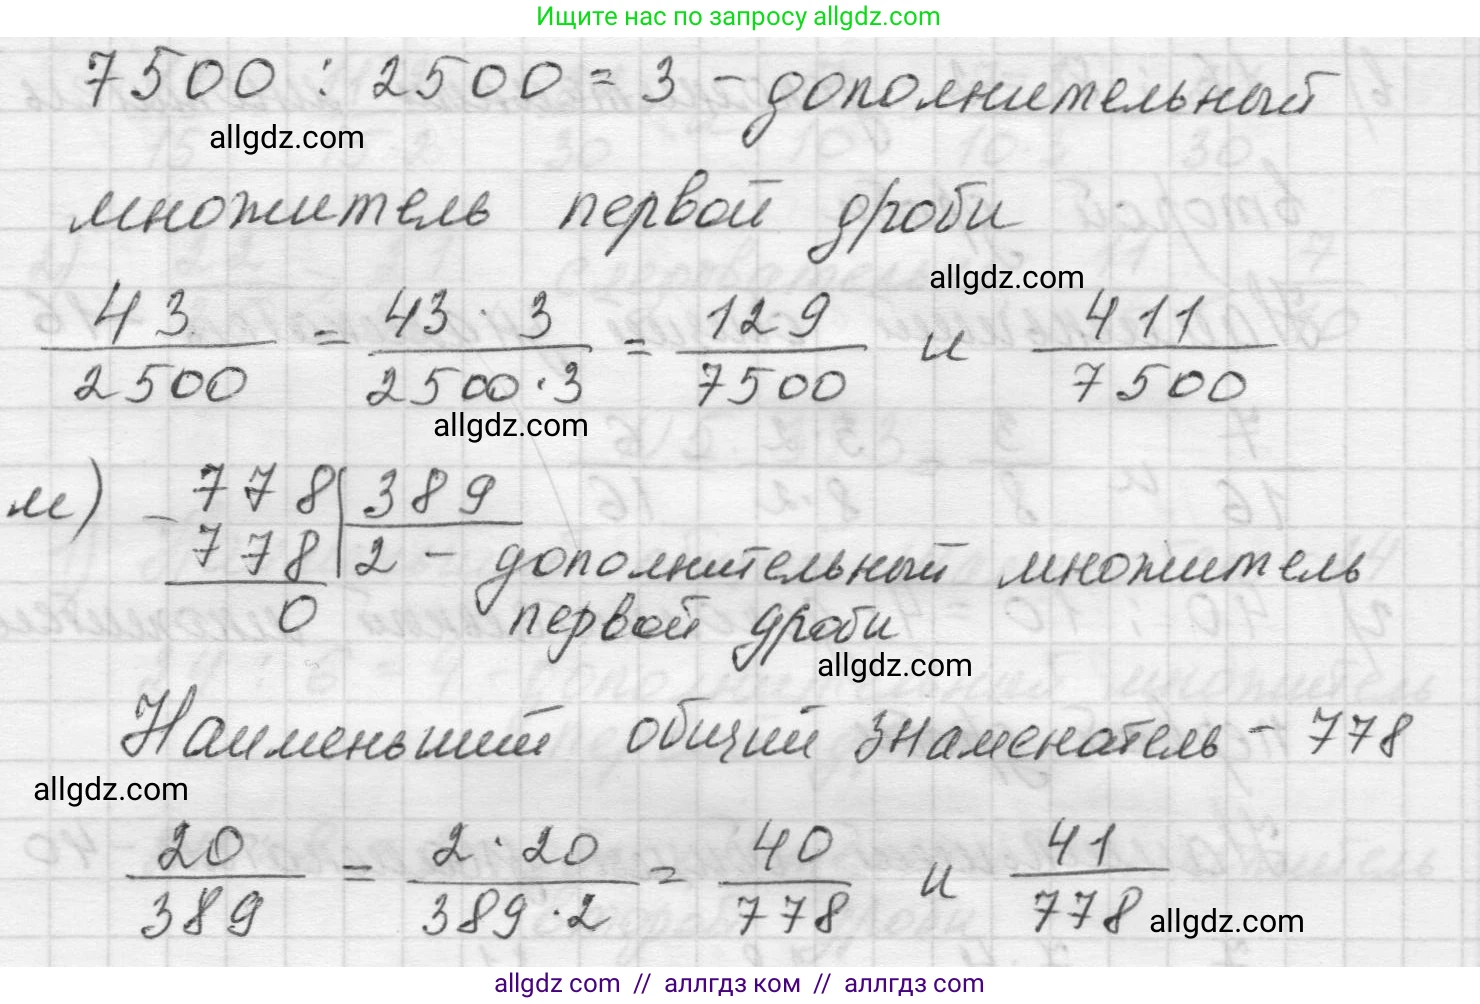 Ищите нас по запросу allgdz.com
7500 : 2500 = 3 – дополнительный
allgdz.com
множитель первой дроби
allgdz.com
43/2500 = 43·3/2500·3 = 129/7500 и 411/7500
allgdz.com
м) 778 | 389
- 778 | 2 – дополнительный множитель
0 первой дроби
allgdz.com
Наименьший общий знаменатель – 778
allgdz.com
20/389 = 2·20/389·2 = 40/778 и 41/778
allgdz.com
allgdz.com // аллгдз ком // аллгдз.com